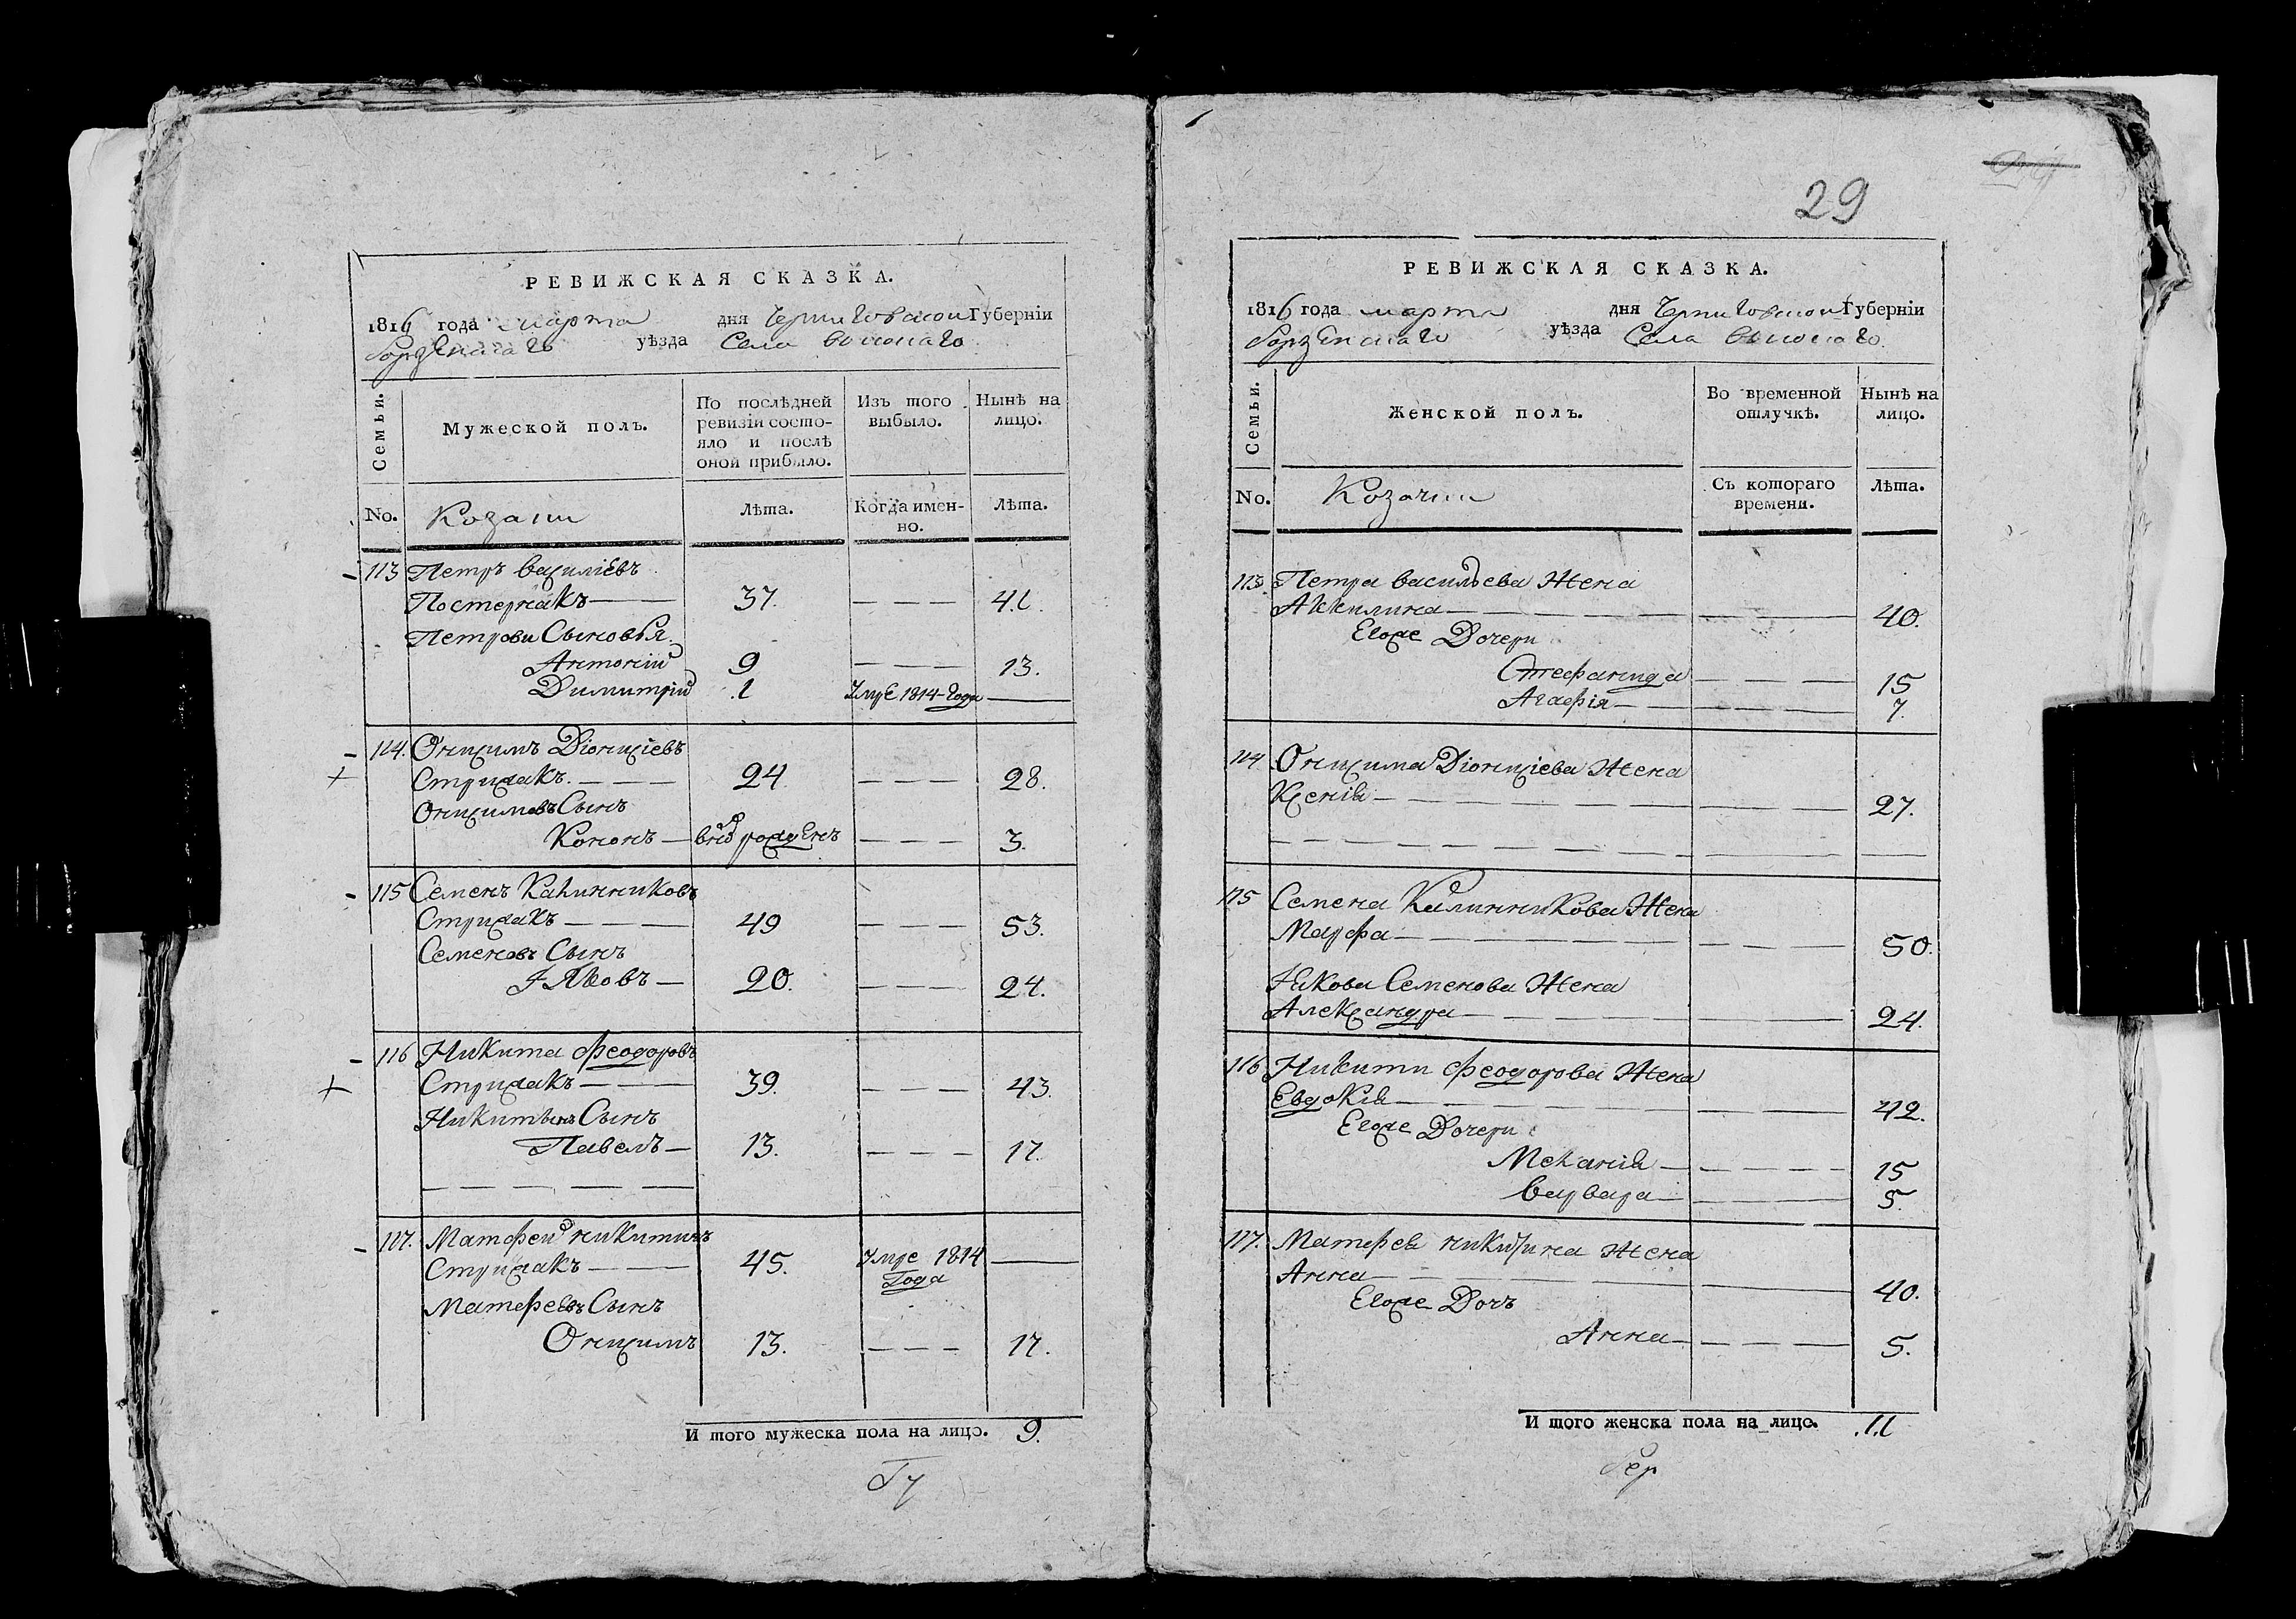 29
РЕВИЖСКАЯ СКАЗКА.
1816 года марта дня Черниговской Губерніи
Борзенскаго уѣзда Села
Семьи. Мужеской полъ. По послѣдней ревизіи состояло и послѣ оной прибыло. Изъ того выбыло. Нынѣ на лицо.
No. Козаки Лѣта. Когда именно. Лѣта.
113 Петръ Василіевъ
Постернакъ — 37. — — — 41.
Петрови Сыновья.
Антоній 9 — — — 13.
Димитрій 1 Умре 1814 года —
114. Онисимъ Діонисіевъ
Стрижакъ. — — 24. — — — 28.
Онисимовъ Сынъ
Кононъ — рожденъ — — — 3.
115 Семенъ Калинниковъ
Стрижакъ — — — 49 — — — 53.
Семеновъ Сынъ
Іяковъ — 20. — — — 24.
116 Никита Феодоровъ
Стрижакъ — — 39. — — — 43.
Никитинъ Сынъ
Павелъ — 13. — — — 17.
117. Матфей Никитинъ
Стрижакъ — — 45. Умре 1814 Года —
Матфеевъ Сынъ
Онисимъ 13. — — — 17.
И того мужеска пола на лицо. 9.
РЕВИЖСКАЯ СКАЗКА.
1816 года марта дня Черниговской Губерніи
Борзенскаго уѣзда Села
Семьи. Женской полъ. Во временной отлучкѣ. Нынѣ на лицо.
No. Козачки Съ котораго времени. Лѣта.
113. Петра Васильева Жена
Акилина — — — 40.
Егоже Дочери
Стефанида — — — 15
Агафія — — 7.
114 Онисима Діонисіева Жена
Ксенія — — — 27.
115 Семена Калинникова Жена
Марфа — — — 50.
Іякова Семенова Жена
Александра — — — 24.
116 Никити Феодорова Жена
Евдокія — — — 42.
Егоже Дочери
Меланія — — — 15
Варвара — — 5.
117. Матфея Никитина Жена
Анна — — — 40.
Егоже Дочь
Анна — — — 5.
И того женска пола на лицо. 11